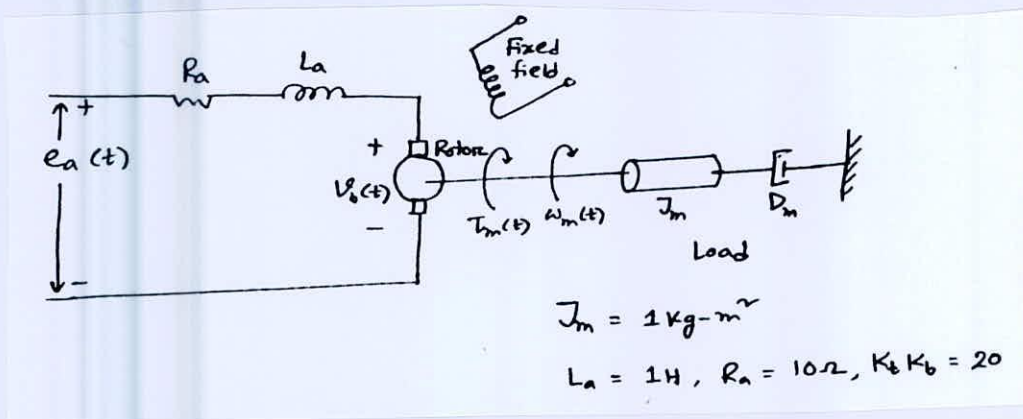 Fixed
field
Ra
La
+
ea (t)
-
+
Rotor
Vb(t)
-
Tm(t)
ωm(t)
Jm
Dm
Load
Jm = 1 Kg-m²
La = 1H, Ra = 10Ω, Kt Kb = 20